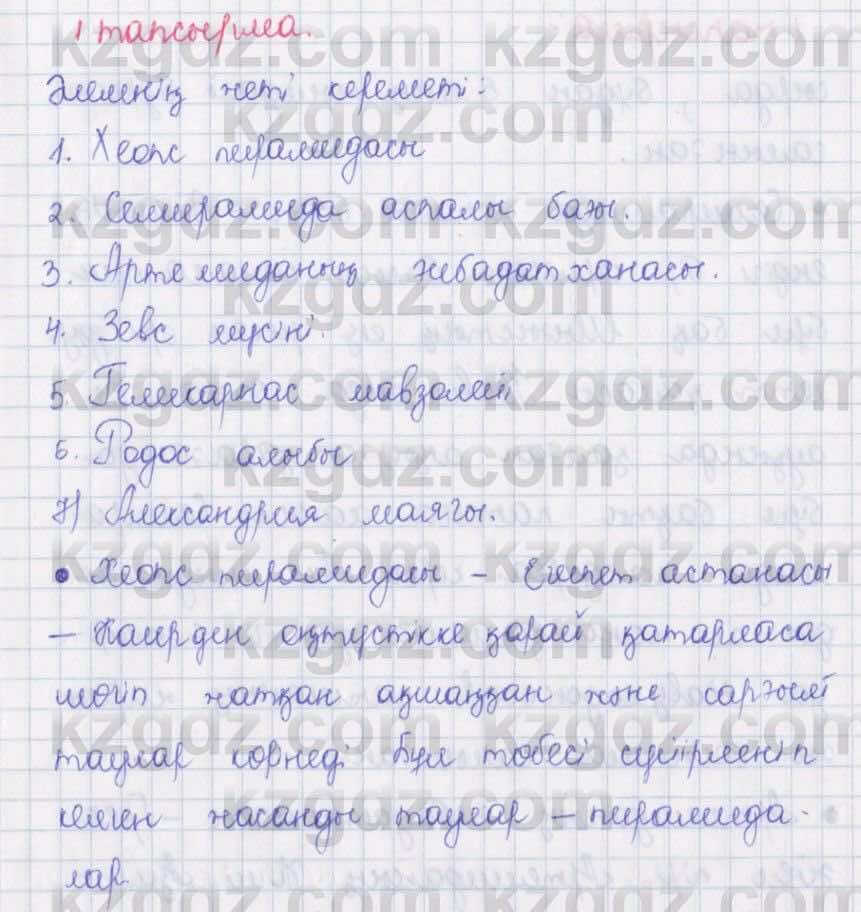 1 тапсырма.
Әлемнің жеті кереметі:
1. Хеопс пирамидасы
2. Семирамида аспалы бағы.
3. Артемиданың ғибадатханасы.
4. Зевс мүсіні.
5. Геликарнас мавзолейі
6. Родос алыбы
7) Александрия маягы.
• Хеопс пирамидасы – Египет астанасы
– Каирден оңтүстікке қарай қатарласа
шөйп жатқан ақшаңқан және сарғыш
таулар корнеді Бұл төбесі сүйірленіп
келген жасанды таулар – пирамида-
лар.